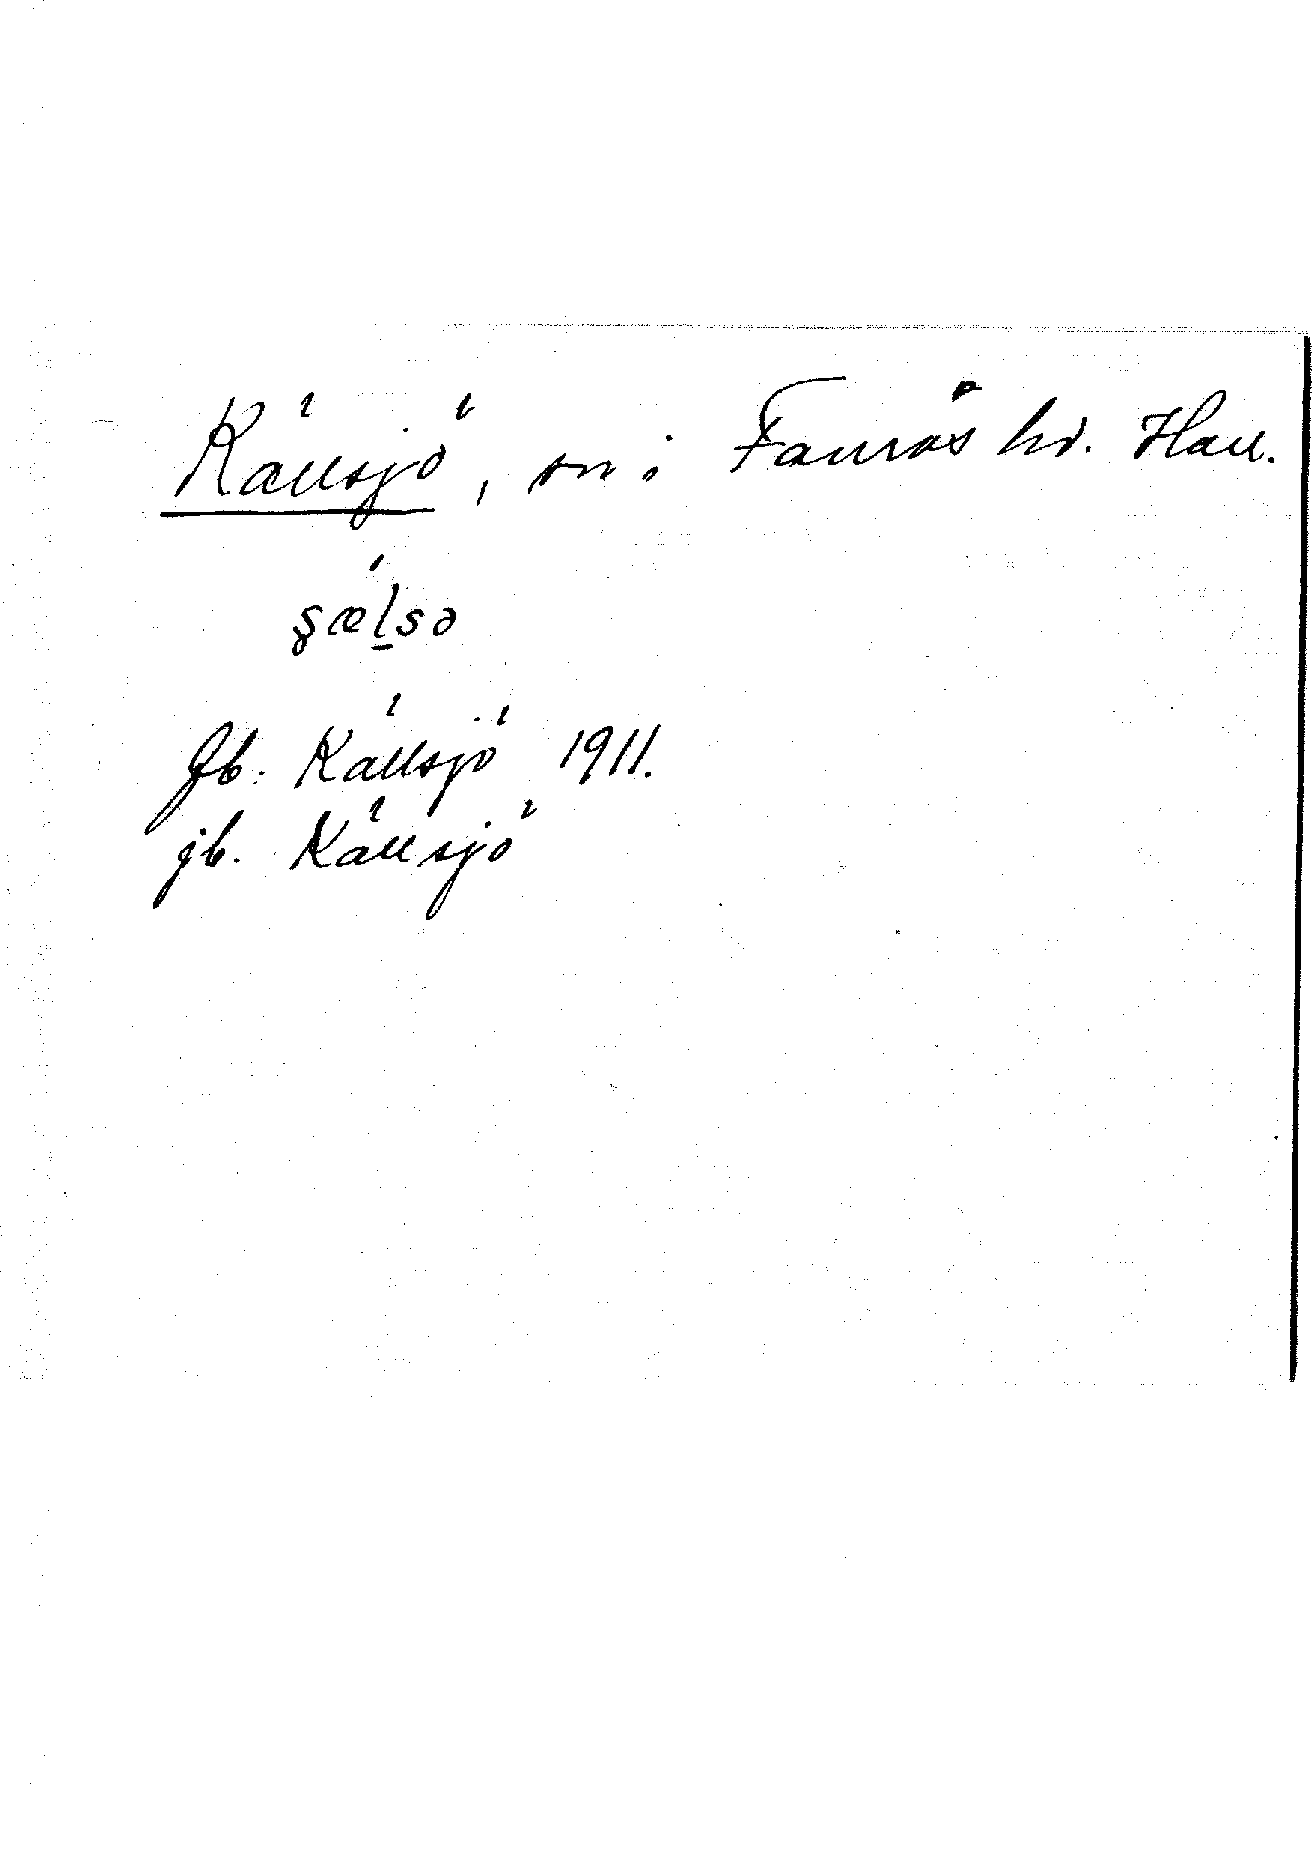 Källsjö, sn i Faurås hd. Hall.
ʂæ̀lsə
Jb. Källsjö 1911.
jb. Källsjö